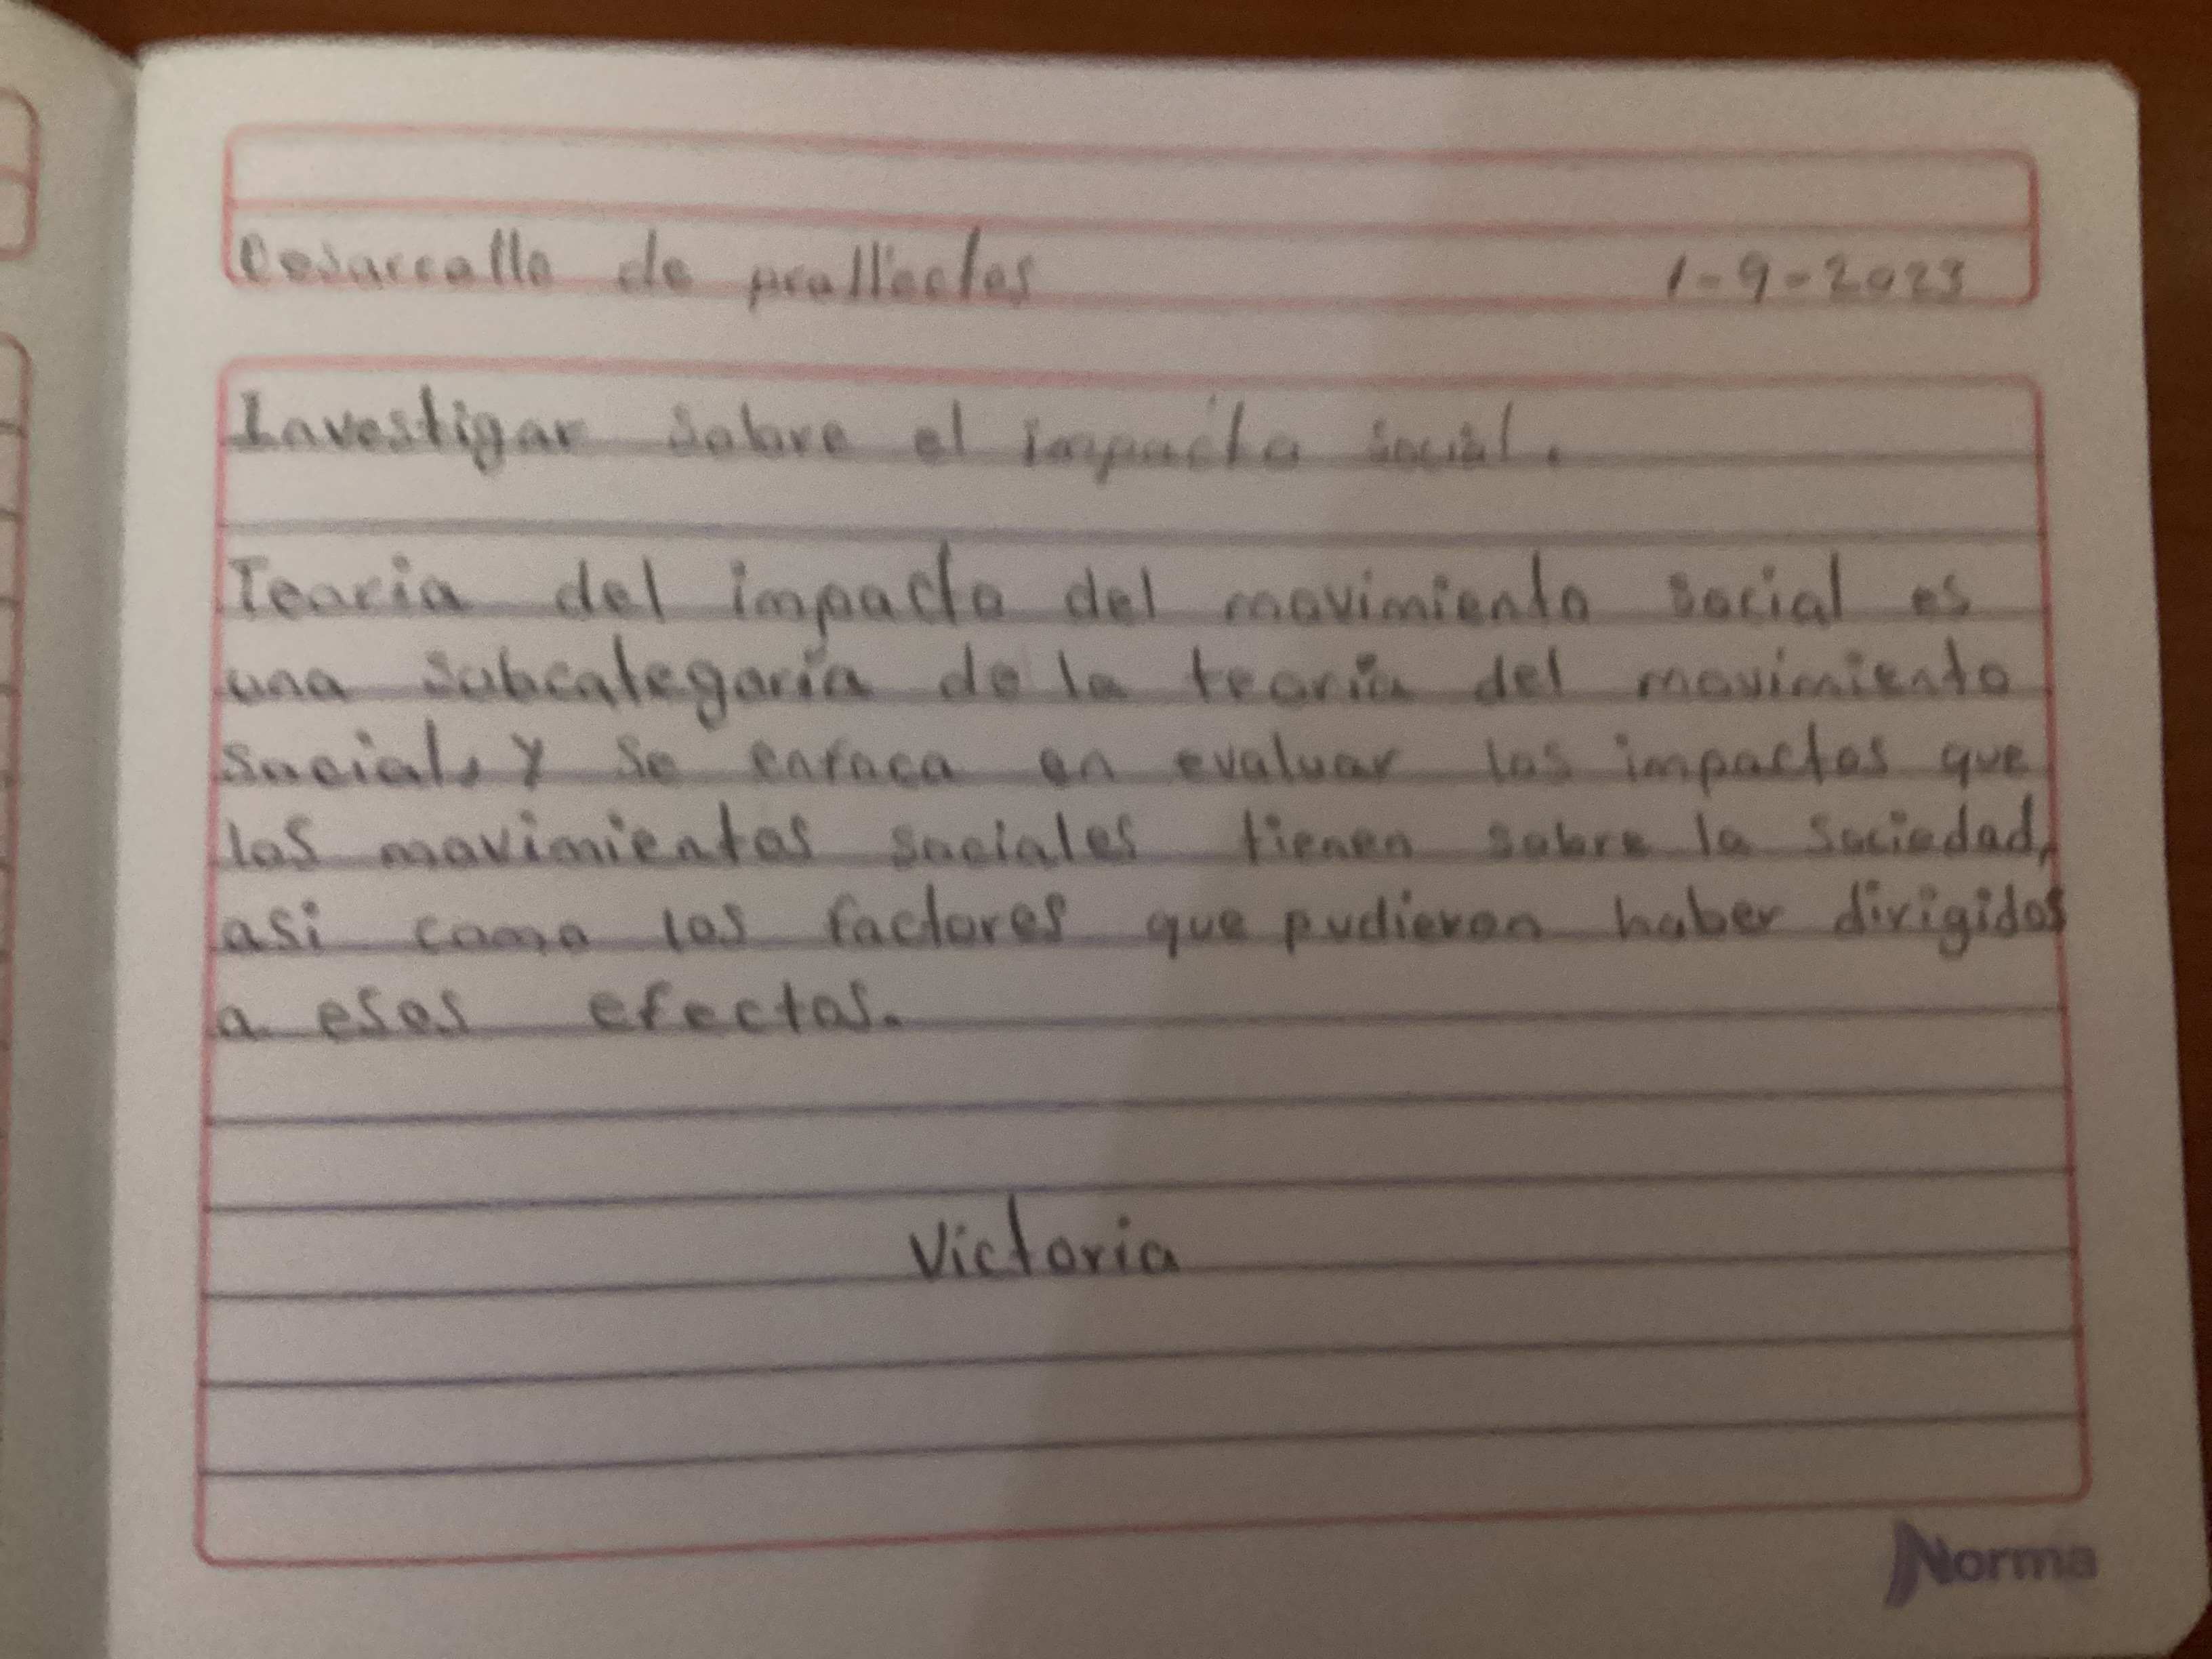 Desarrollo de prollectos 1-9-2023
Investigar sobre el impacto social.
Teoria del impacto del movimiento social es
una subcategoría de la teoria del movimiento
social, y se enfoca en evaluar los impactos que
los movimientos sociales tienen sobre la sociedad,
asi como los factores que pudieron haber dirigidos
a esos efectos.
Victoria
Norma